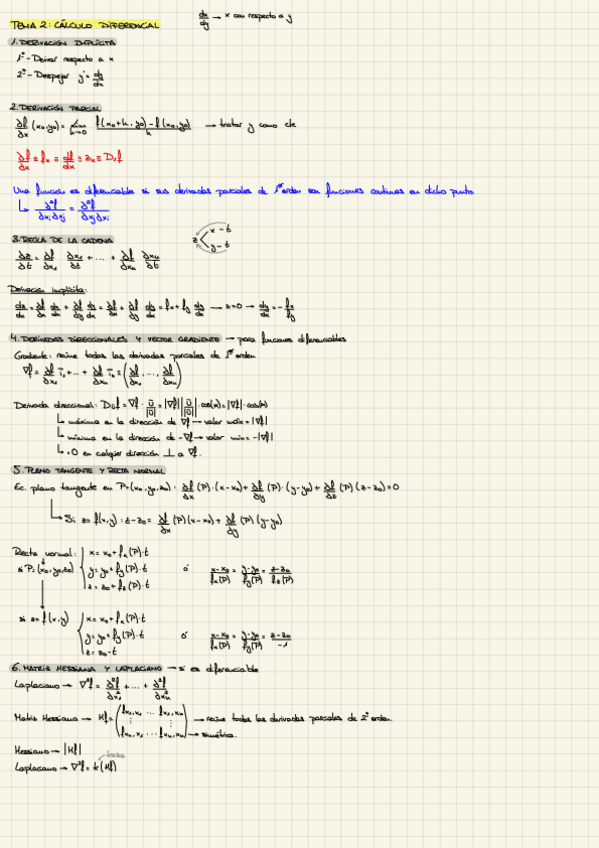 dx/dy → x con respecto a y
TEMA 2: CÁLCULO DIFERENCIAL
1. DERIVACIÓN IMPLÍCITA
1º - Derivar respecto a x
2º - Despejar y' = dy/dx
2. DERIVACIÓN PARCIAL
∂f/∂x (x₀,y₀) = lim h→0 f(x₀+h, y₀) - f(x₀,y₀) / h → tratar y como cte
∂f/∂x ≡ fx ≡ df/dx ≡ zx ≡ D₁f
Una función es diferenciable si sus derivadas parciales de 1er orden son funciones continuas en dicho punto
↳ ∂²f/∂xi∂xj = ∂²f/∂xj∂xi
z < x - t
y - t
3. REGLA DE LA CADENA
∂z/∂t = ∂f/∂x₁ ∂x₁/∂t + ... + ∂f/∂xn ∂xn/∂t
Derivación implícita:
dz/dx = ∂f/∂x dx/dx + ∂f/∂y dy/dx = ∂f/∂x + ∂f/∂y dy/dx = fx + fy dy/dx → z=0 → dy/dx = - fx/fy
4. DERIVADAS DIRECCIONALES Y VECTOR GRADIENTE → para funciones diferenciables
Gradiente: reúne todas las derivadas parciales de 1er orden
∇f = ∂f/∂x₁ i₁ + ... + ∂f/∂xn in = (∂f/∂x₁, ..., ∂f/∂xn)
Derivada direccional: Dūf = ∇f · ū/|ū| = |∇f| |ū/|ū|| · cos(α) = |∇f| · cos(α)
↳ máxima en la dirección de ∇f → valor máx = |∇f|
↳ mínima en la dirección de -∇f → valor min = -|∇f|
↳ 0 en cualquier dirección ⊥ a ∇f.
5. PLANO TANGENTE Y RECTA NORMAL
Ec. plano tangente en P=(x₀,y₀,z₀): ∂f/∂x (P)·(x-x₀) + ∂f/∂y (P)·(y-y₀) + ∂f/∂z (P)(z-z₀) = 0
↳ Si z=f(x,y): z-z₀ = ∂f/∂x (P)(x-x₀) + ∂f/∂y (P)(y-y₀)
Recta normal: x = x₀ + fx(P)·t
si P=(x₀,y₀,z₀) y = y₀ + fy(P)·t ó x-x₀/fx(P) = y-y₀/fy(P) = z-z₀/fz(P)
z = z₀ + fz(P)·t
si z=f(x,y) x = x₀ + fx(P)·t
y = y₀ + fy(P)·t ó x-x₀/fx(P) = y-y₀/fy(P) = z-z₀/-1
z = z₀ - t
6. MATRIZ HESSIANA Y LAPLACIANO → si es diferenciable
Laplaciano → ∇²f = ∂²f/∂x₁² + ... + ∂²f/∂xn²
Matriz Hessiana → Hf = (fx₁x₁ ... fx₁xn ⋮ ⋮ fxnx₁ ... fxnxn) → reúne todas las derivadas parciales de 2º orden.
→ simétrica.
Hessiano → |Hf|
traza
Laplaciano → ∇²f = tr(Hf)